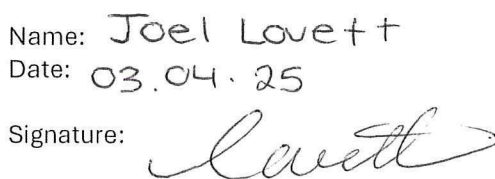 Name: Joel Lovett
Date: 03.04.25
Signature: Lovett